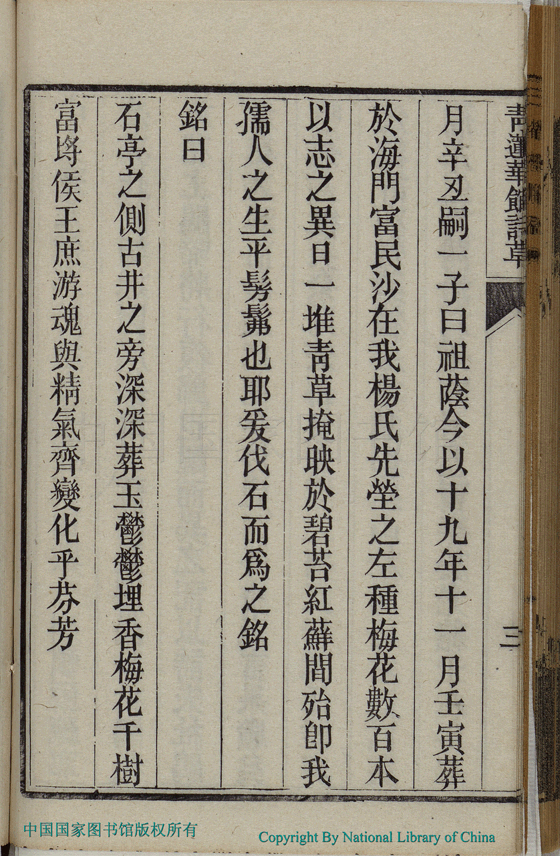 青蓮華館詩草
三
月辛丑嗣一子曰祖蔭今以十九年十一月壬寅葬
於海門富民沙在我楊氏先塋之左種梅花數百本
以志之異日一堆青草掩映於碧苔紅蘚間殆卽我
孺人之生平髣髴也耶爰伐石而爲之銘
銘曰
石亭之側古井之旁深深葬玉鬱鬱埋香梅花千樹
富埓侯王庶游魂與精氣齊變化乎芬芳
中国国家图书馆版权所有
Copyright By National Library of China